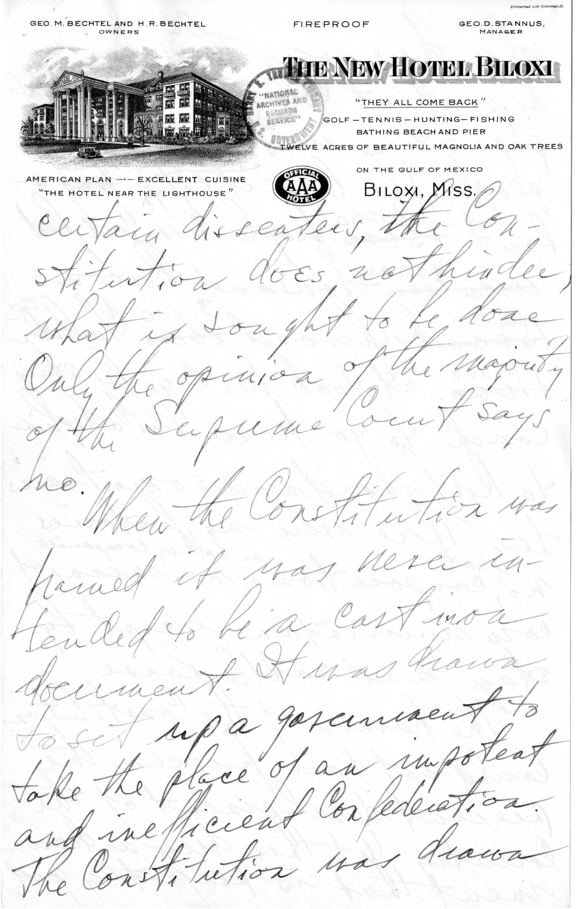 Zimmerman Lith Cincinnati, O.
GEO. M. BECHTEL AND H. R. BECHTEL
OWNERS
FIREPROOF
GEO. D. STANNUS,
MANAGER
THE NEW HOTEL BILOXI
"THEY ALL COME BACK"
GOLF – TENNIS – HUNTING – FISHING
BATHING BEACH AND PIER
TWELVE ACRES OF BEAUTIFUL MAGNOLIA AND OAK TREES
HARRY S. TRUMAN LIBRARY
"NATIONAL
ARCHIVES AND
RECORDS
SERVICE"
U. S. GOVERNMENT
AMERICAN PLAN — EXCELLENT CUISINE
"THE HOTEL NEAR THE LIGHTHOUSE"
OFFICIAL
AAA
HOTEL
ON THE GULF OF MEXICO
BILOXI, MISS.
certain dissenters, the Con-
stitution does not hinder,
what is sought to be done
Only the opinion of the majority
of the Supreme Court says
no.
When the Constitution was
framed it was never in-
tended to be a cast iron
document. It was drawn
to set up a government to
take the place of an impotent
and inefficient Confederation.
The Constitution was drawn